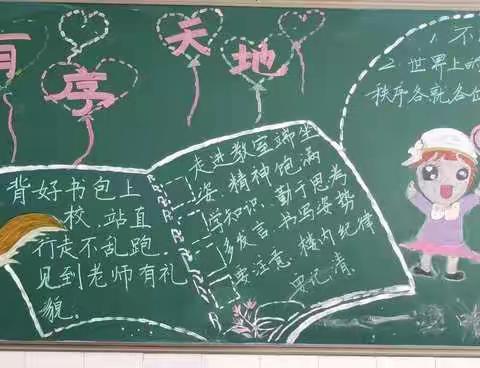 有序天地
背好书包上
校,站直
行走不乱跑,
见到老师有礼
貌。
走进教室端坐
姿,精神饱满
学知识,勤于思考
多发言,书写姿势
要注意,楼内纪律
要记清。
1.不
2.世界上的
秩序各就各位